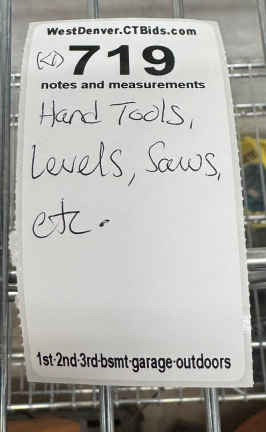 WestDenver.CTBids.com
KD 719
notes and measurements
Hand Tools,
Levels, Saws,
etc.
1st-2nd-3rd-bsmt-garage-outdoors